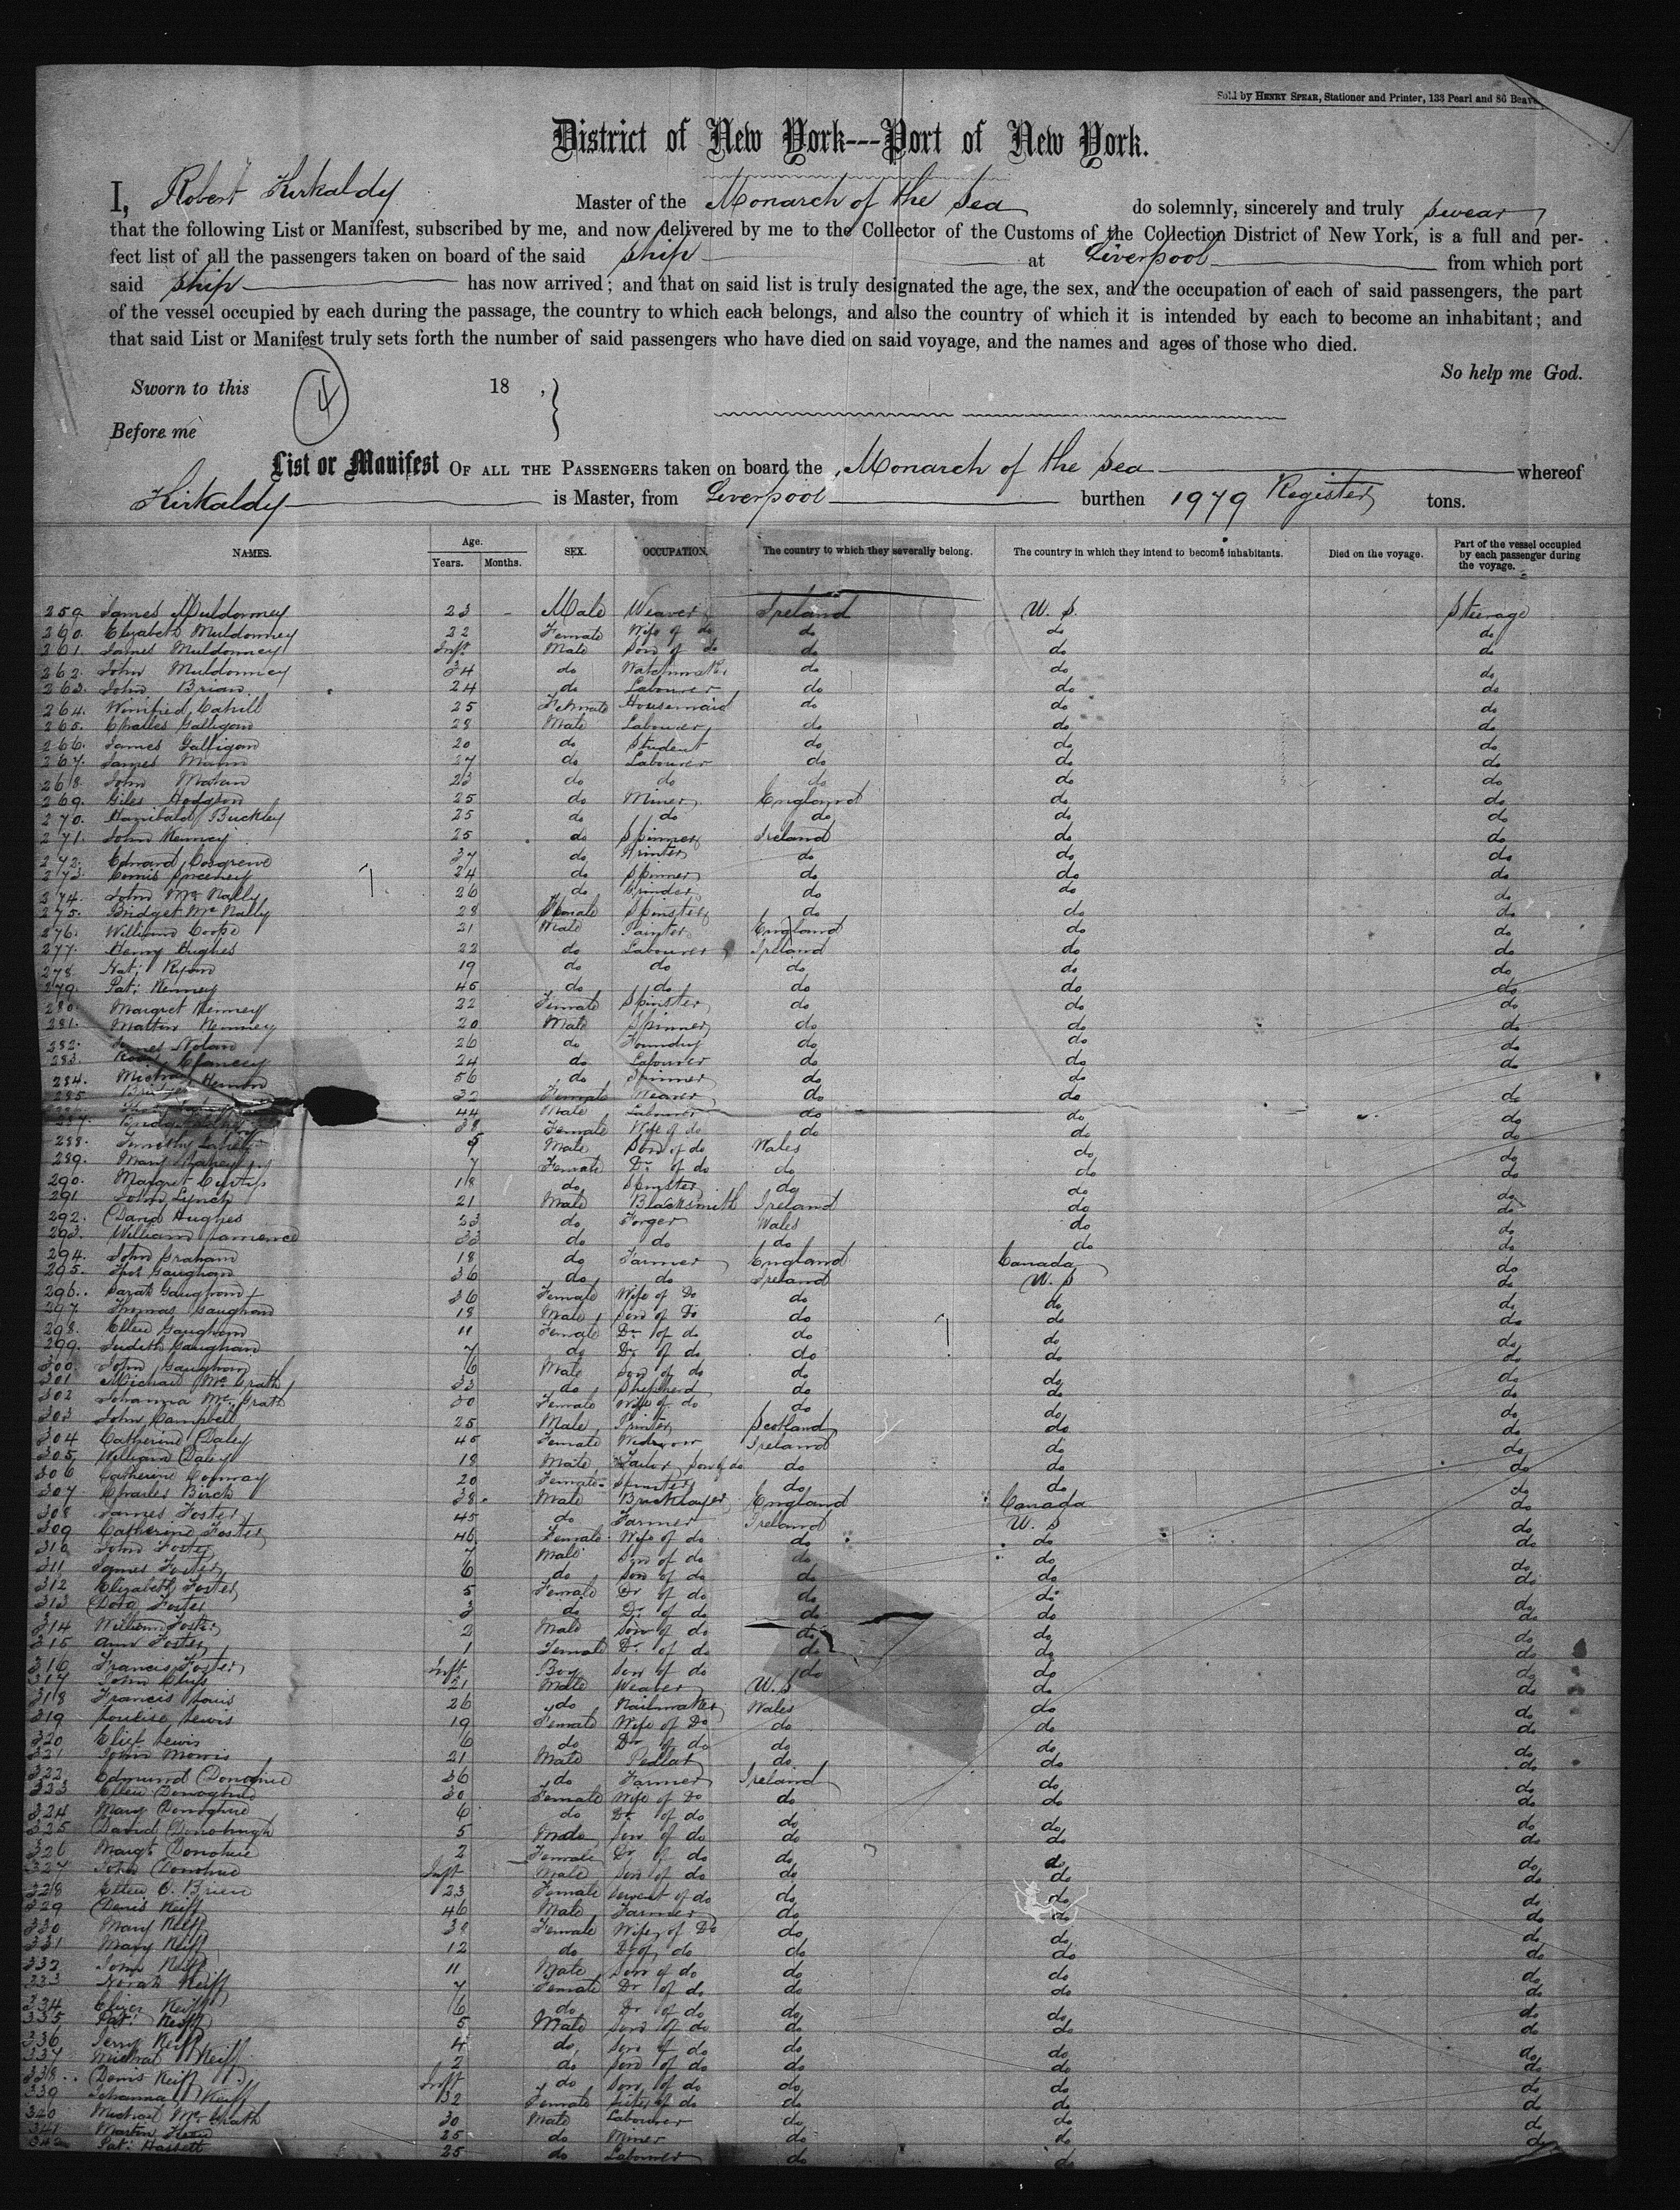 Sold by HENRY SPEAR, Stationer and Printer, 133 Pearl and 86 Beave
District of New York---Port of New York.
I, Robert Kirkaldy Master of the Monarch of the Sea do solemnly, sincerely and truly swear
that the following List or Manifest, subscribed by me, and now delivered by me to the Collector of the Customs of the Collection District of New York, is a full and per-
fect list of all the passengers taken on board of the said ship at Liverpool from which port
said ship has now arrived; and that on said list is truly designated the age, the sex, and the occupation of each of said passengers, the part
of the vessel occupied by each during the passage, the country to which each belongs, and also the country of which it is intended by each to become an inhabitant; and
that said List or Manifest truly sets forth the number of said passengers who have died on said voyage, and the names and ages of those who died.
So help me God.
Sworn to this 4 18 ,
Before me
List or Manifest OF ALL THE PASSENGERS taken on board the Monarch of the Sea whereof
Kirkaldy is Master, from Liverpool burthen 1979 Register tons.
NAMES. Age. Years. Months. SEX. OCCUPATION. The country to which they severally belong. The country in which they intend to become inhabitants. Died on the voyage. Part of the vessel occupied by each passenger during the voyage.
259 James Muldonney 23 Male Weaver Ireland U. S. Steerage
260. Elizabeth Muldonney 22 Female Wife of do do do do
261. James Muldonney Inft. Male Son of do do do do
262. John Muldonney 34 do Watchmaker do do do
263. John Brian 24 do Labourer do do do
264. Winnified Cahill 25 Female Housemaid do do do
265. Charles Galligan 28 Male Labourer do do do
266. James Galligan 20 do Student do do do
267. James 27 do Labourer do do do
268. John 23 do do do do do
269. Giles Hodgson 25 do Miner England do do
270. Hanibald Buckley 25 do do do do do
271. John Kenney 25 do Spinner Ireland do do
272. Edward Cosgrove 37 do Printer do do do
273. Sweeney 24 do Spinner do do do
274. John McNally 26 do Grinder do do do
275. Bridget McNally 28 Female Spinster do do do
276. William Coope 21 Male Painter England do do
277. Henry Hughes 22 do Labourer Ireland do do
278. Ryan 19 do do do do do
279. Pat: Kenney 45 do do do do do
280. Margret Kenney 22 Female Spinster do do do
281. Kenney 20 Male Spinner do do do
282. James Nolan 26 do Foundry do do do
283. Clancey 24 do Labourer do do do
284. Michael 56 do Spinner do do do
285. 32 Female Weaver do do do
44 Male Labourer do do do
287. Bridget 38 Female Wife of do do do do
288. Timothy 5 Male Son of do Wales do do
289. Mary 7 Female Dr. of do do do do
290. Margret Curtis 18 do Spinster do do do
291 John Lynch 21 Male Blacksmith Ireland do do
292. David Hughes 23 do Forger Wales do do
293. William 33 do do do do do
294. John Graham 18 do Farmer England Canada do
295. Thos Gaughan 36 do do Ireland U. S do
296. Sarah Gaughan 36 Female Wife of Do do do do
297. Thomas Gaughan 18 Male Son of Do do do do
298. Ellen Gaughan 11 Female Dr. of do do do do
299. Judith Gaughan 7 do Dr. of do do do do
300. John Gaughan 6 Male Son of do do do do
301 Michael McGrath 33 do Shepherd do do do
302 Johanna McGrath 30 Female Wife of do do do do
303 John Campbell 25 Male Printer Scotland do do
304 Catherine Daley 45 Female Widow Ireland do do
305 William Daley 18 Male Tailor Son of do do do do
306 Catherine Conway 20 Female Spinster do do do
307 Charles Birch 38 Male Bricklayer England Canada do
308 James Foster 45 do Farmer Ireland U. S do
309 Catherine Foster 46 Female Wife of do do do do
310 John Foster 7 Male Son of do do do do
311 James Foster 6 do Son of do do do do
312 Elizabeth Foster 5 Female Dr of do do do do
313 Foster 3 do Dr. of do do do do
314 William Foster 2 Male Son of do do do do
315 Ann Foster 1 Female Dr. of do do do do
316 Francis Foster Inft Boy Son of do do do do
317 John 21 Male Weaver U. S do do
318 Francis 26 do Nailmaker Wales do do
319 Lewis 19 Female Wife of Do do do do
320 Lewis 6 do Dr of do do do do
321 John Morris 21 Male do do do
322 Edmund Donoghue 36 do Farmer Ireland do do
323 Ellen Donoghue 30 Female Wife of Do do do do
324 Mary Donoghue 6 do Dr. of do do do do
325 David 5 Male Son of do do do do
326 Margt. Donohue 2 Female Dr of do do do do
327 John Donohue Inft Male Son of do do do do
328 Ellen O. Brien 23 Female Servant of do do do do
329 Denis Keiff 46 Male Farmer do do do
330 Mary Keiff 38 Female Wife of Do do do do
331 Mary Keiff 12 do Dr of do do do do
332 John Keiff 11 Male Son of do do do do
333 Norah Keiff 7 Female Dr of do do do do
334 Keiff 6 do Dr of do do do do
335 Pat: Keiff 5 Male Son of do do do do
336 Jerry Keiff 4 do Son of do do do do
337 Michal Keiff 2 do Son of do do do do
338 Denis Keiff Inft do Son of do do do do
339 Johanna Keiff 32 Female Sister of do do do do
340 Michael McGrath 30 Male Labourer do do do
341 Martin 25 do Miner do do do
342 Pat: Hassett 25 do Labourer do do